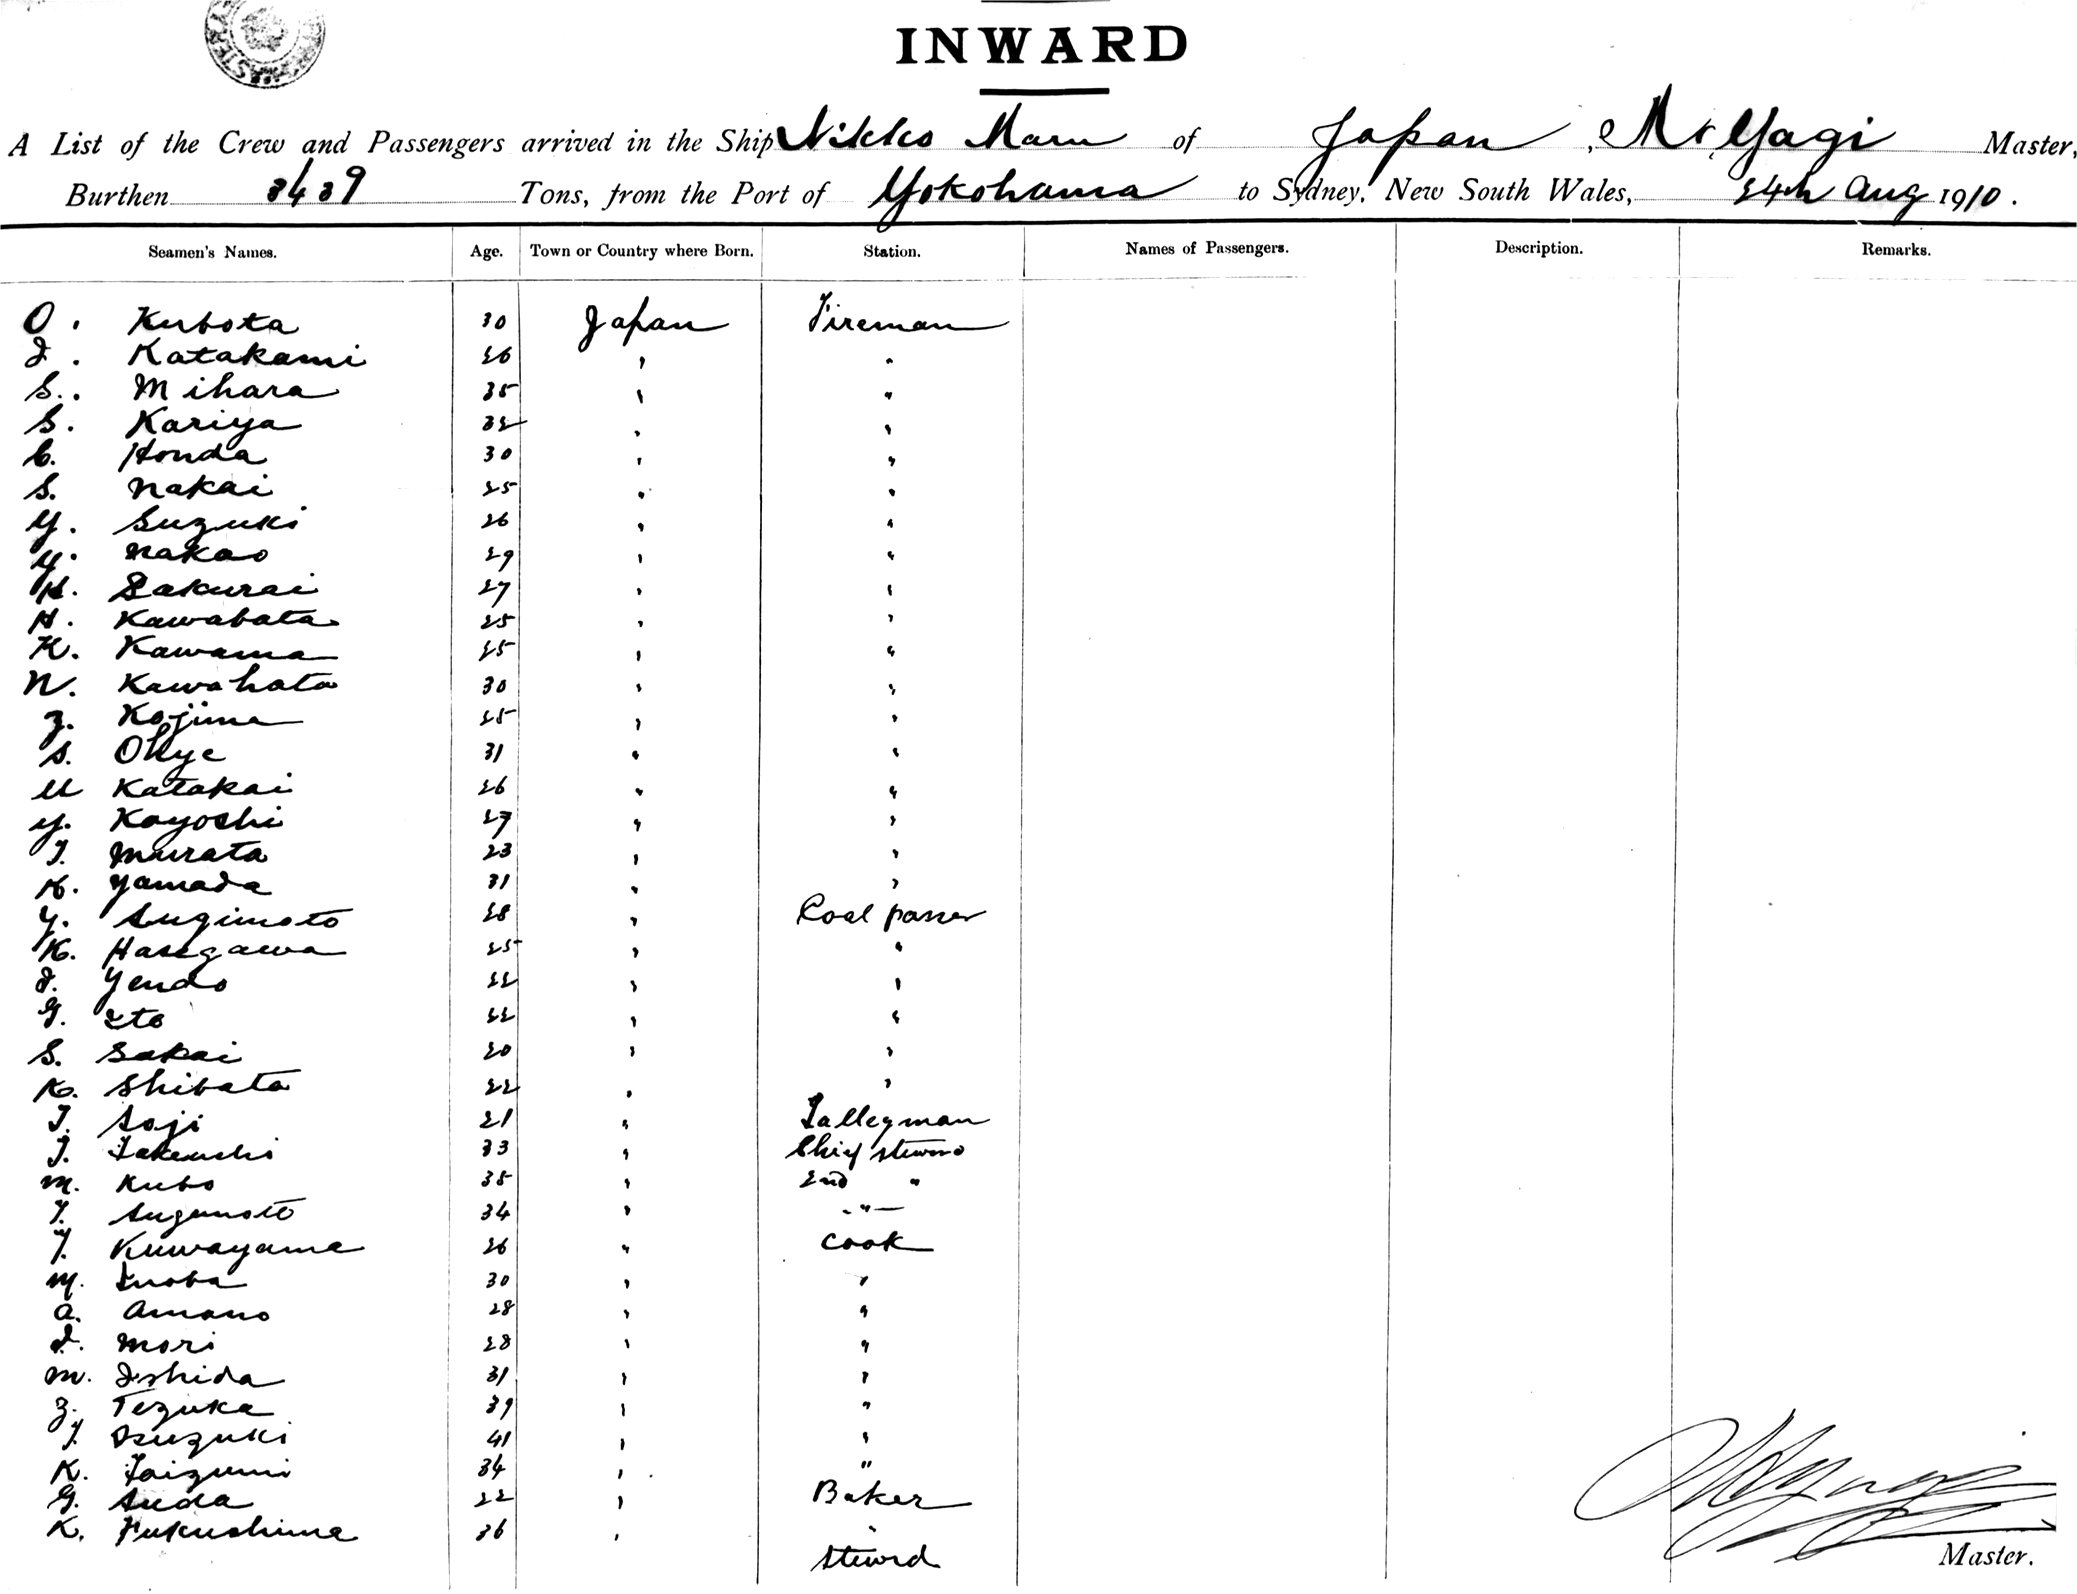 INWARD
A List of the Crew and Passengers arrived in the Ship Nikko Maru of Japan, M. Yagi Master,
Burthen 3439 Tons, from the Port of Yokohama to Sydney, New South Wales, 24th Aug 1910.
Seamen's Names. Age. Town or Country where Born. Station. Names of Passengers. Description. Remarks.
O. Kubota 30 Japan Fireman
I. Katakami 26 " "
S. Mihara 35 " "
S. Kariya 32 " "
C. Honda 30 " "
S. Nakai 25 " "
Y. Suzuki 26 " "
Y. Nakao 29 " "
H. Sakurai 27 " "
H. Kawabata 25 " "
K. Kawama 25 " "
N. Kawahata 30 " "
Z. Kojima 25 " "
S. Ohye 31 " "
U Katakai 26 " "
Y. Kayoshi 27 " "
T. Murata 23 " "
K. Yamada 31 " "
Y. Sugimoto 28 " Coal passer
K. Hasegawa 25 " "
I. Yendo 22 " "
G. Ito 22 " "
S. Sakai 20 " "
K. Shibata 22 " "
T. Soji 21 " Talleyman
T. Takeuchi 33 " Chief steward
M. Kubo 35 " 2nd "
T. Sugimoto 34 " "
T. Kuwayama 26 " Cook
M. Inoba 30 " "
A. Amano 28 " "
I. Mori 28 " "
M. Ishida 31 " "
Z. Tezuka 39 " "
T. Suzuki 41 " "
K. Taizumi 34 " "
G. Suda 22 " Baker
K. Fukushima 36 " "
Stewrd
Master.